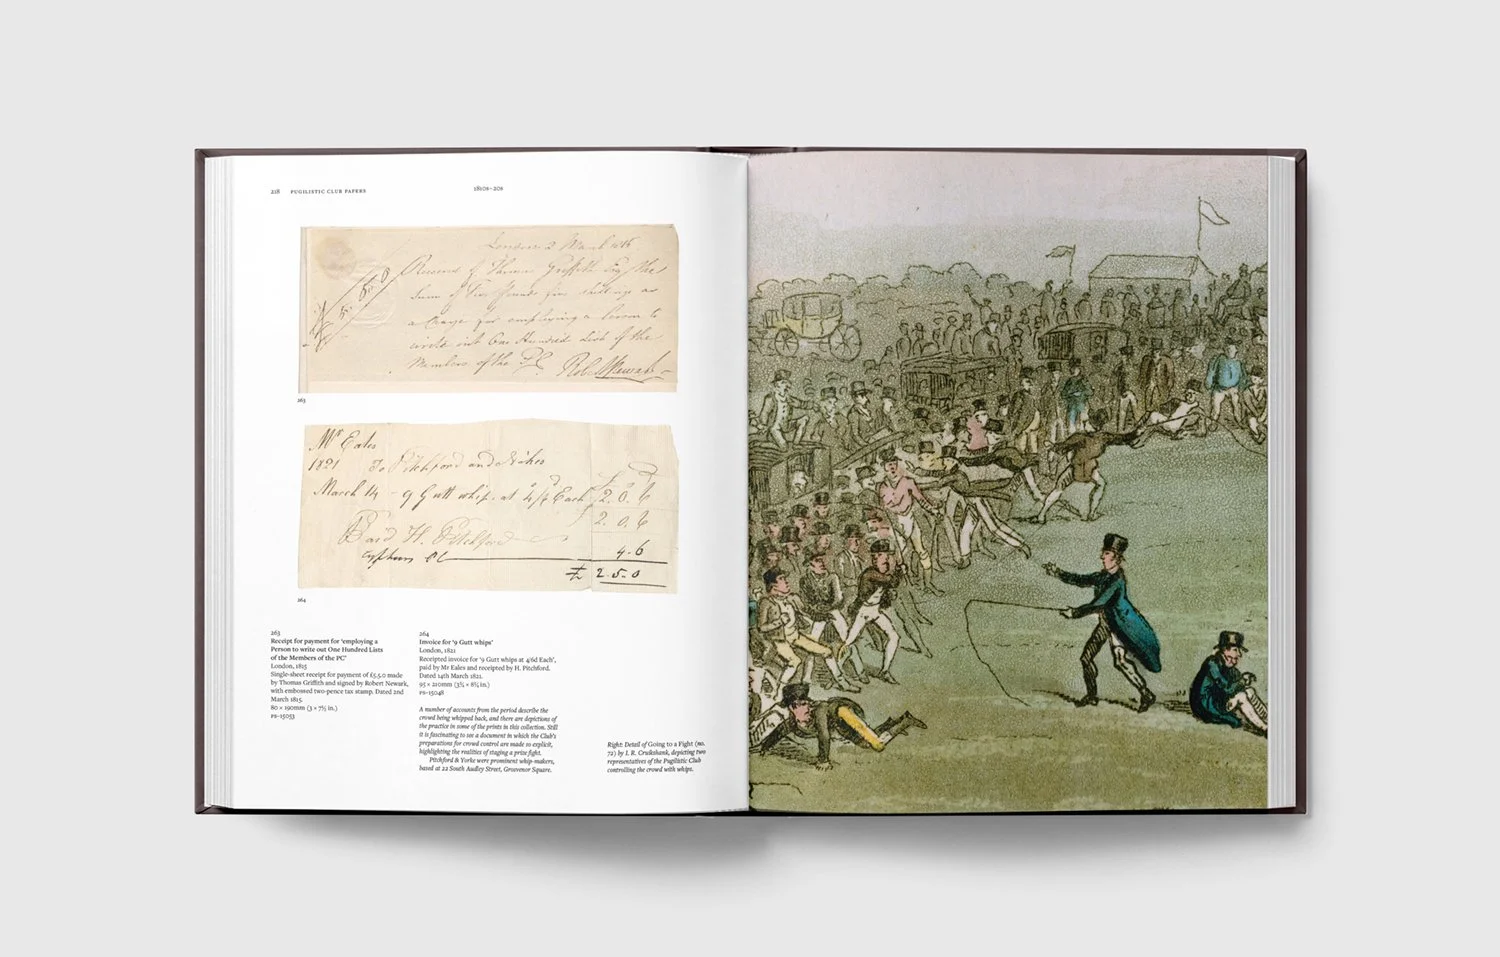 218 PUGILISTIC CLUB PAPERS
1810s–20s
London 2 March 1815
Received of Thomas Griffith Esq the
Sum of Five Pounds five shillings as
a Charge for employing a Person to
write out One Hundred List of the
Members of the P.C.
Robt Newark
5.5.0
263
Mr Eales
1821 To Pitchford and
March 14 - 9 Gutt whips at 4/6 Each 2.0.6
2.0.6
H. Pitchford
4.6
£ 2.5.0
264
263
Receipt for payment for ‘employing a
Person to write out One Hundred Lists
of the Members of the PC’
London, 1815
Single-sheet receipt for payment of £5.5.0 made
by Thomas Griffith and signed by Robert Newark,
with embossed two-pence tax stamp. Dated 2nd
March 1815.
80 × 190mm (3 × 7½ in.)
PS-15033
264
Invoice for ‘9 Gutt whips’
London, 1821
Receipted invoice for ‘9 Gutt whips at 4/6d Each’,
paid by Mr Eales and receipted by H. Pitchford.
Dated 14th March 1821.
95 × 210mm (3¾ × 8¼ in.)
PS-15048
A number of accounts from the period describe the
crowd being whipped back, and there are depictions of
the practice in some of the prints in this collection. Still
it is fascinating to see a document in which the Club’s
preparations for crowd control are made so explicit,
highlighting the realities of staging a prize fight.
Pitchford & Yorke were prominent whip-makers,
based at 22 South Audley Street, Grosvenor Square.
Right: Detail of Going to a Fight (no.
72) by I. R. Cruikshank, depicting two
representatives of the Pugilistic Club
controlling the crowd with whips.